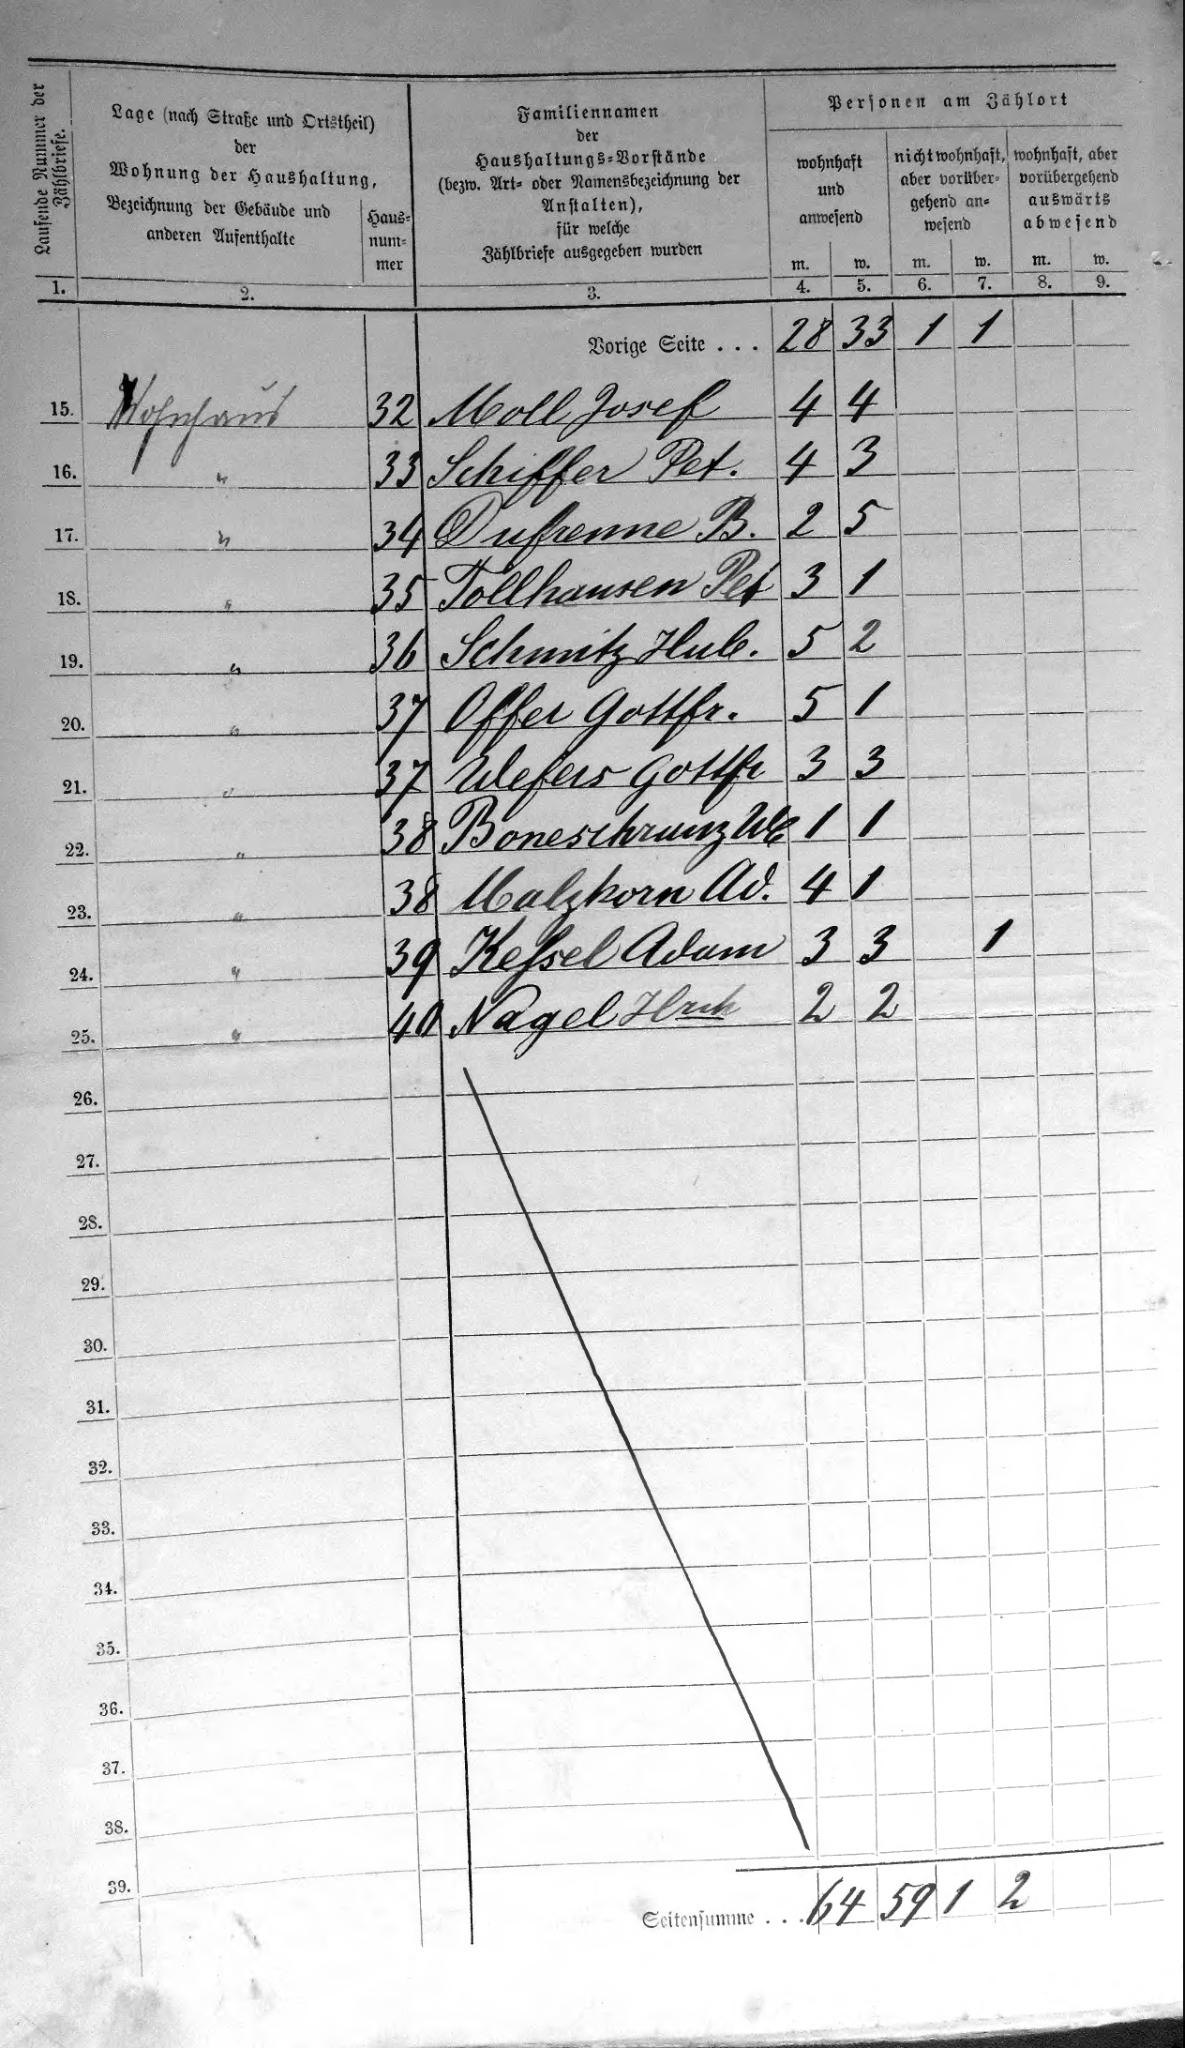 Laufende Nummer der Zählbriefe.
Lage (nach Straße und Ortstheil)
der
Wohnung der Haushaltung,
Bezeichnung der Gebäude und
anderen Aufenthalte
Haus-
num-
mer
Familiennamen
der
Haushaltungs-Vorstände
(bezw. Art- oder Namensbezeichnung der
Anstalten),
für welche
Zählbriefe ausgegeben wurden
Personen am Zählort
wohnhaft
und
anwesend
nicht wohnhaft,
aber vorüber-
gehend an-
wesend
wohnhaft, aber
vorübergehend
auswärts
abwesend
m. w. m. w. m. w.
1. 2. 3. 4. 5. 6. 7. 8. 9.
Vorige Seite . . . 28 33 1 1
15. Wohnhaus 32 Moll Josef 4 4
16. " 33 Schiffer Pet. 4 3
17. " 34 Dufrenne B. 2 5
18. " 35 Tollhausen Pet 3 1
19. " 36 Schmitz Hub. 5 2
20. " 37 Offer Gottfr. 5 1
21. " 37 Wefers Gottfr 3 3
22. " 38 Boneschranz We 1 1
23. " 38 Malzkorn Ad. 4 1
24. " 39 Keſsel Adam 3 3 1
25. " 40 Nagel Hrch 2 2
26.
27.
28.
29.
30.
31.
32.
33.
34.
35.
36.
37.
38.
39.
Seitensumme . . . 64 59 1 2